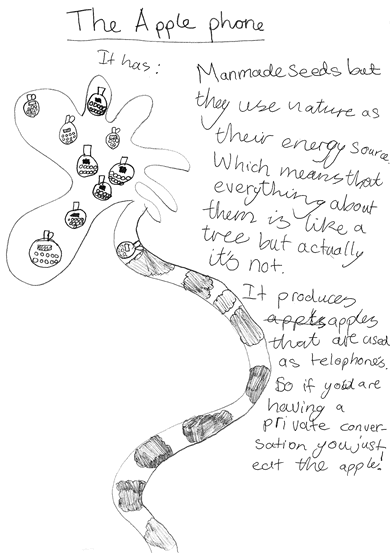 The Apple phone
It has:
Manmade seeds but
they use nature as
their energy source.
Which means that
everything about
them is like a
tree but actually
it's not.
It produces
apples apples
that are used
as telophones.
So if you are
having a
private conver-
sation you just
eat the apple!